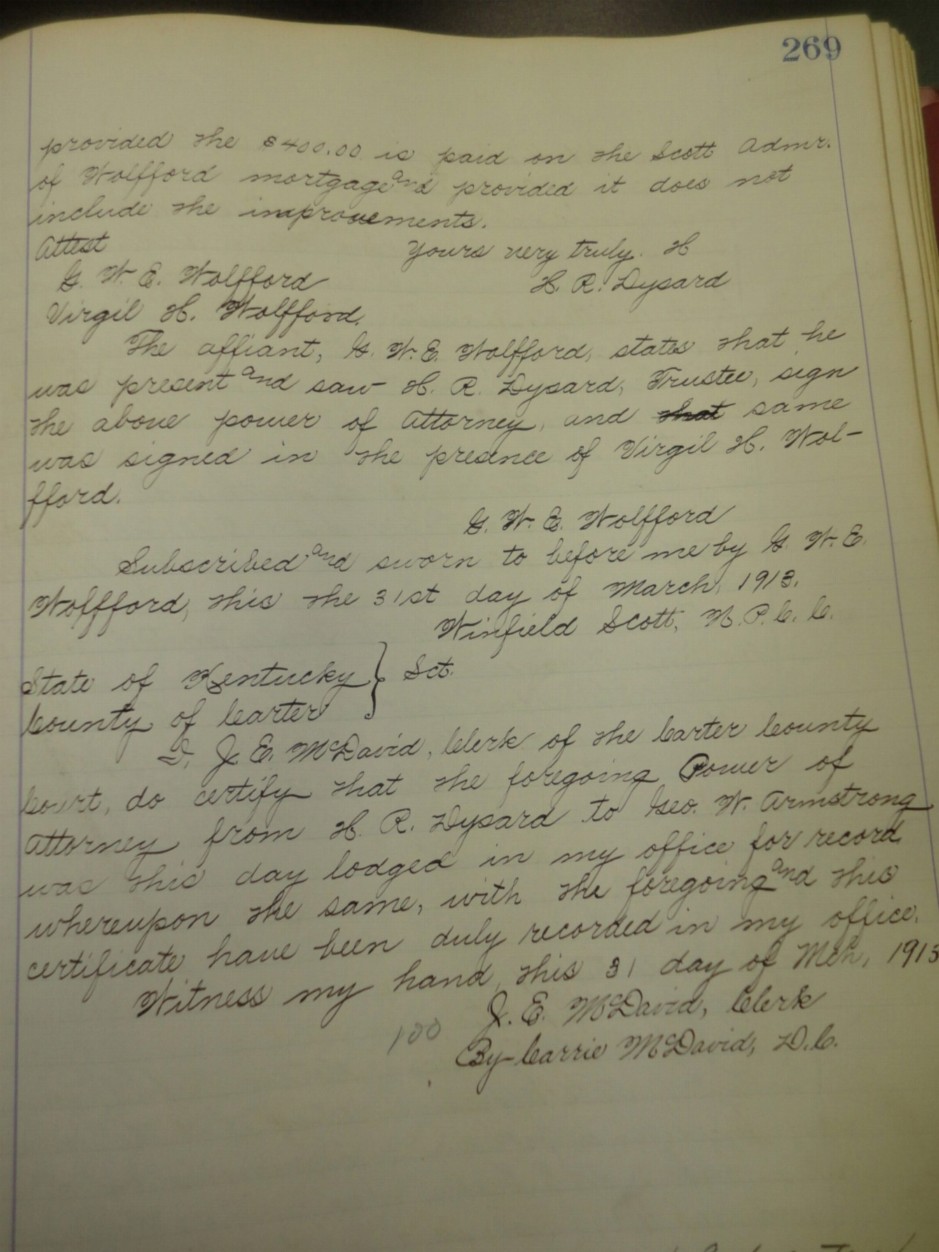 269
provided the $400.00 is paid on the Scott Admr.
of Wolfford mortgage and provided it does not
include the improvements.
Attest Yours very truly. H
G. W. E. Wolfford H. R. Dysard
Virgil H. Wolfford.
The affiant, G. W. E. Wolfford, states that he
was present and saw H. R. Dysard, Trustee, sign
the above power of Attorney, and that same
was signed in the presence of Virgil H. Wol-
fford.
G. W. E. Wolfford
Subscribed and sworn to before me by G. W. E.
Wolffford, this the 31st day of March, 1913.
Winfield Scott, N. P. C. C.
State of Kentucky } Sct.
County of Carter
I, J. E. McDavid, Clerk of the Carter County
Court, do certify that the foregoing Power of
Attorney from H. R. Dysard to Geo. W. Armstrong
was this day lodged in my office for record
whereupon the same, with the foregoing and this
certificate have been duly recorded in my office.
Witness my hand, this 31 day of Mch, 1913
100 J. E. McDavid, Clerk
By Carrie McDavid, D.C.